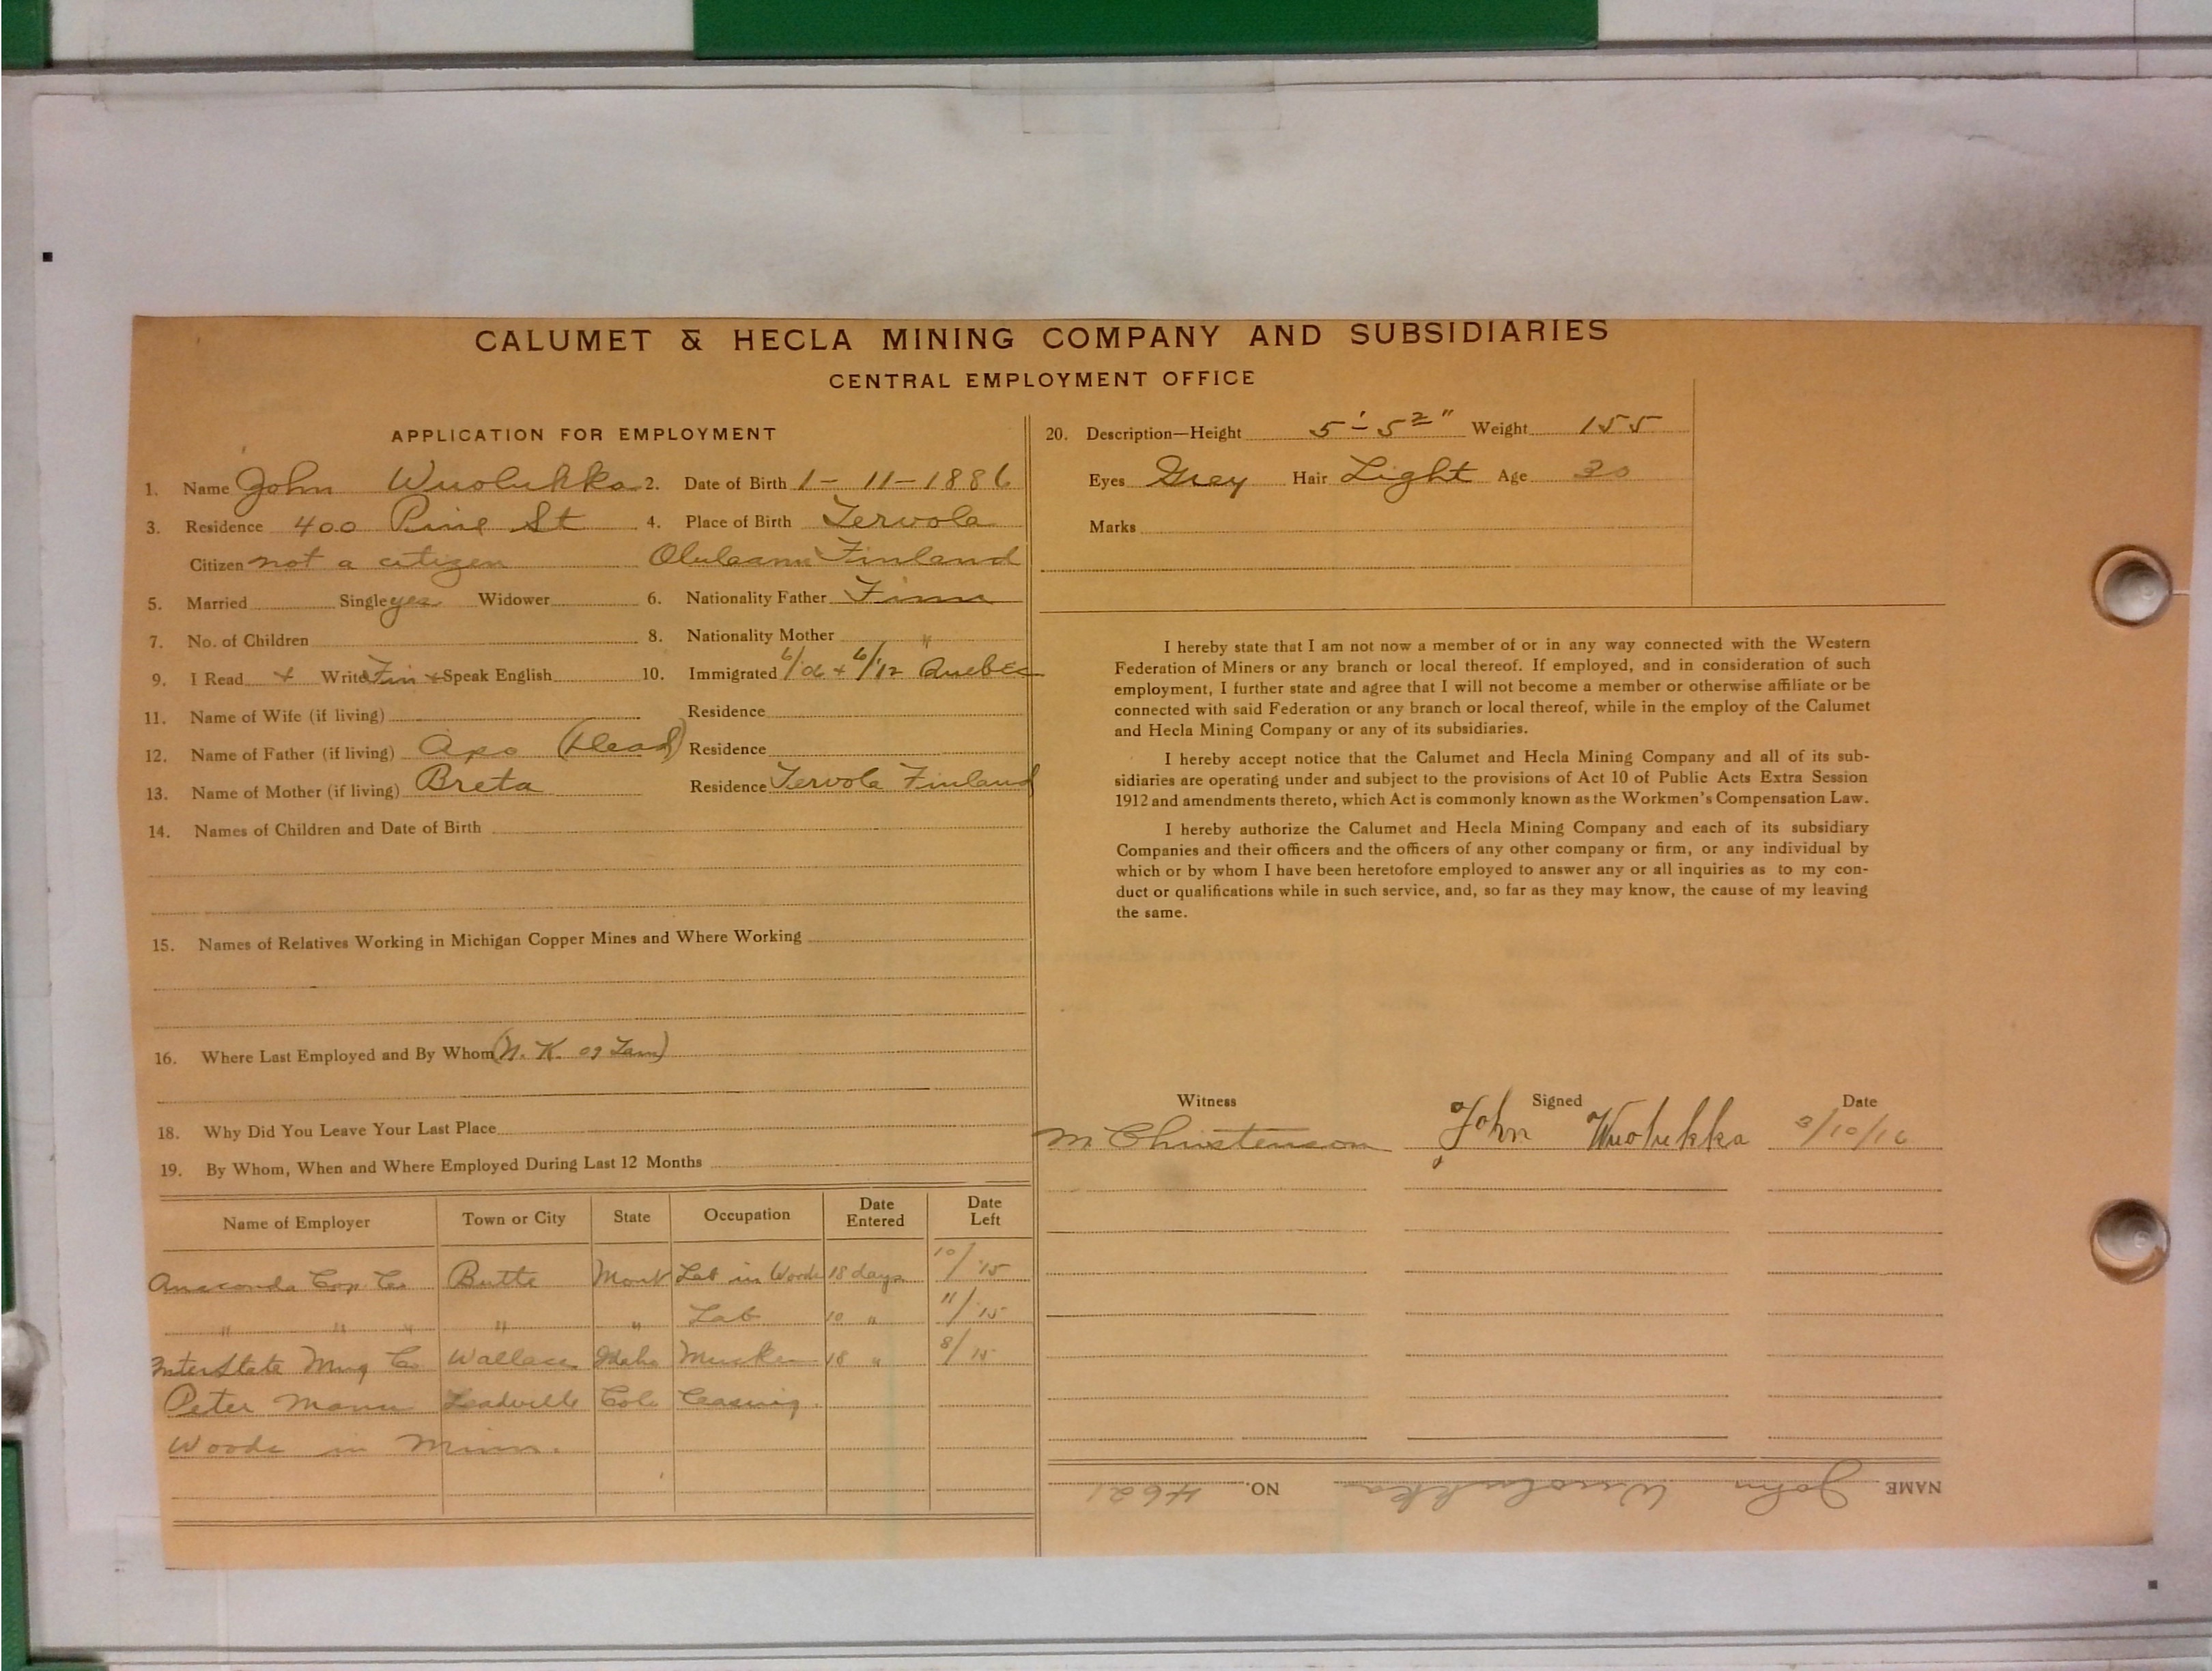 CALUMET & HECLA MINING COMPANY AND SUBSIDIARIES
CENTRAL EMPLOYMENT OFFICE
APPLICATION FOR EMPLOYMENT
1. Name John Wuolukka 2. Date of Birth 1-11-1886
3. Residence 400 Pine St 4. Place of Birth Tervola
Citizen not a citizen Oluleann Finland
5. Married Single yes Widower 6. Nationality Father Finn
7. No. of Children 8. Nationality Mother "
9. I Read + Write Fin + Speak English 10. Immigrated 6/06 + 6/12 Quebec
11. Name of Wife (if living) Residence
12. Name of Father (if living) Apo (Dead) Residence
13. Name of Mother (if living) Breta Residence Tervola Finland
14. Names of Children and Date of Birth
15. Names of Relatives Working in Michigan Copper Mines and Where Working
16. Where Last Employed and By Whom (N. K. 09 Tam)
18. Why Did You Leave Your Last Place
19. By Whom, When and Where Employed During Last 12 Months
Name of Employer Town or City State Occupation Date Entered Date Left
Anaconda Cop Co Butte Mont Lab in Woods 18 days 10/'15
" " " " " Lab 10 " 11/15
InterState Mng Co Wallace Idaho Mucker 18 " 8/15
Peter Mann Leadville Colo Leasing.
Woods in Minn.
20. Description—Height 5'-5 2" Weight 155
Eyes Grey Hair Light Age 30
Marks
I hereby state that I am not now a member of or in any way connected with the Western
Federation of Miners or any branch or local thereof. If employed, and in consideration of such
employment, I further state and agree that I will not become a member or otherwise affiliate or be
connected with said Federation or any branch or local thereof, while in the employ of the Calumet
and Hecla Mining Company or any of its subsidiaries.
I hereby accept notice that the Calumet and Hecla Mining Company and all of its sub-
sidiaries are operating under and subject to the provisions of Act 10 of Public Acts Extra Session
1912 and amendments thereto, which Act is commonly known as the Workmen's Compensation Law.
I hereby authorize the Calumet and Hecla Mining Company and each of its subsidiary
Companies and their officers and the officers of any other company or firm, or any individual by
which or by whom I have been heretofore employed to answer any or all inquiries as to my con-
duct or qualifications while in such service, and, so far as they may know, the cause of my leaving
the same.
Witness Signed Date
M Christenson John Wuolukka 3/10/16
NAME John Wuolukka NO. 4621